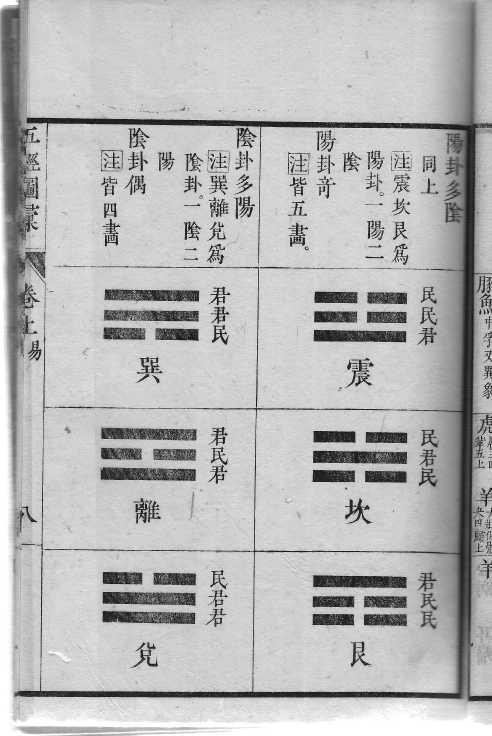 陽卦多陰
同上
注震坎艮爲
陽卦。一陽二
陰
陽卦奇
注皆五畫。
民民君
震
民君民
坎
君民民
艮
陰卦多陽
注巽離兌爲
陰卦。一陰二
陽
陰卦偶
注皆四畫
君君民
巽
君民君
離
民君君
兌
五經圖彙
卷上
易
八
豚魚
虎
羊
羊